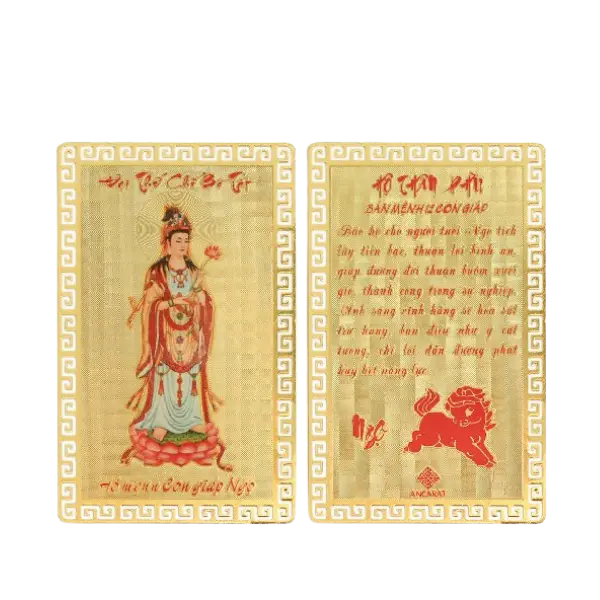 Đại Thế Chí Bồ Tát
Hộ mệnh Con giáp Ngọ
HỘ THÂN PHẬT
BẢN MỆNH 12 CON GIÁP
Bảo hộ cho người tuổi Ngọ tích
lũy tiền bạc, thuận lợi bình an,
giúp đường đời thuận buồm xuôi
gió, thành công trong sự nghiệp.
Ánh sáng vĩnh hằng sẽ hóa sát
trừ hung, ban điều như ý cát
tường, chỉ lối dẫn đường phát
huy hết năng lực.
Ngọ
ANCARAT